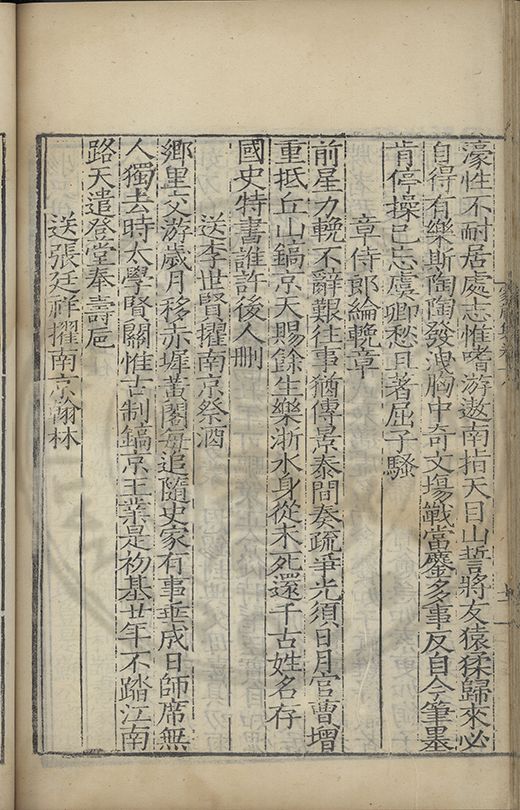 濠性不耐居處志惟嗜游遨南指天目山誓將友猿猱歸來必
自得有樂斯陶陶發洩胸中奇文塲戰當鏖多事反自今筆墨
肯停操已忘虞卿愁且著屈子騷
章侍郎綸輓章
前星力輓不辭艱往事猶傳景泰間奏疏爭光須日月官曹增
重抵丘山鎬京天賜餘生樂浙水身從未死還千古姓名存
國史特書誰許後人刪
送李世賢擢南京祭酒
鄉里交游歲月移赤墀黃閣每追隨史家有事垂成日師席無
人獨去時太學賢關惟古制鎬京王業是初基廿年不踏江南
路天遣登堂奉壽巵
送張廷祥擢南京翰林